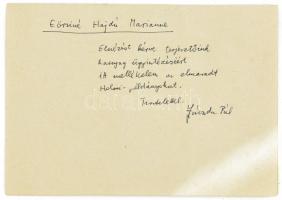 Egriné Hajdú Marianne
Elnézést kérve terjedelmünk
hanyag ügyintézéséért
itt mellékelem az elmaradt
Holmi-példányokat.
Tisztelettel
Závada Pál